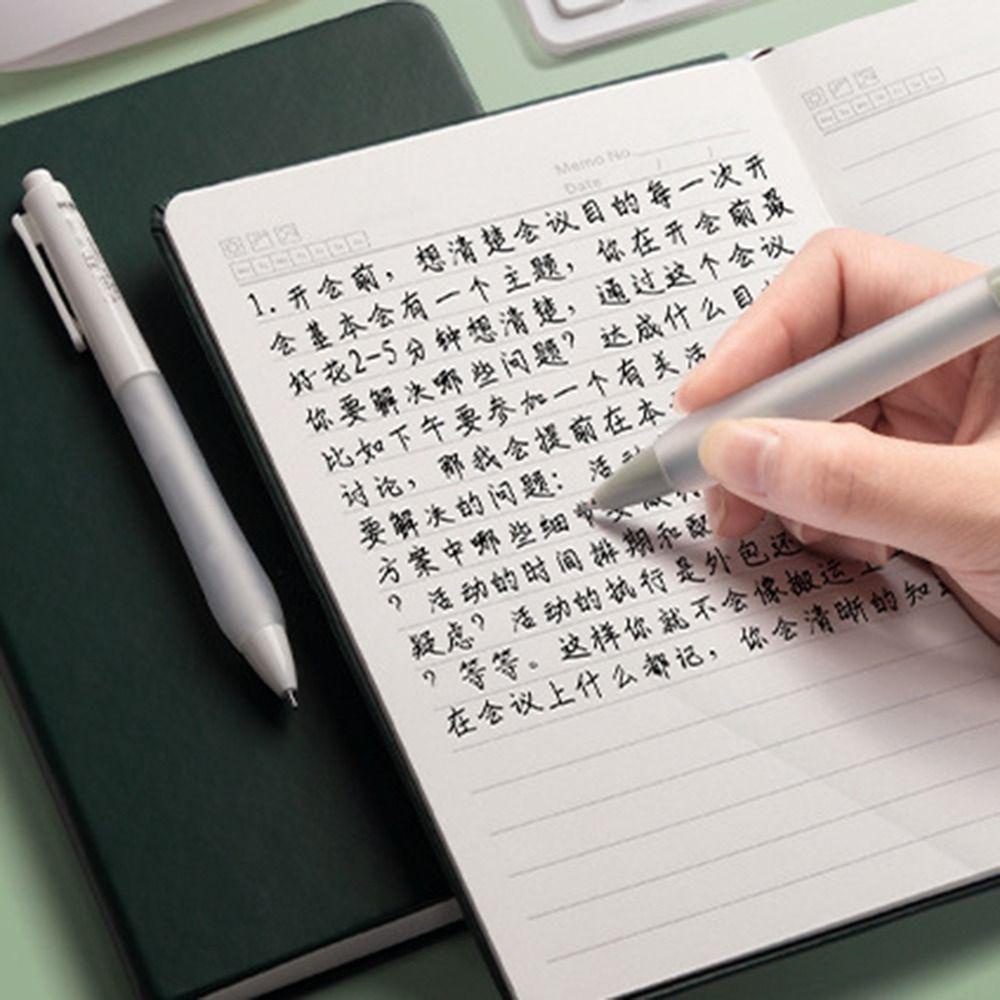 Memo No.
Date / /
1. 开会前，想清楚会议目的每一次开
会基本会有一个主题，你在开会前最
好花2-5分钟想清楚，通过这个会议
你要解决哪些问题？达成什么目
比如下午要参加一个有关活
讨论，那我会提前在本
要解决的问题：活动
方案中哪些细节要
？活动的时间排期和配
疑虑？活动的执行是外包还
？等等。这样你就不会像搬运工
在会议上什么都记，你会清晰的知道